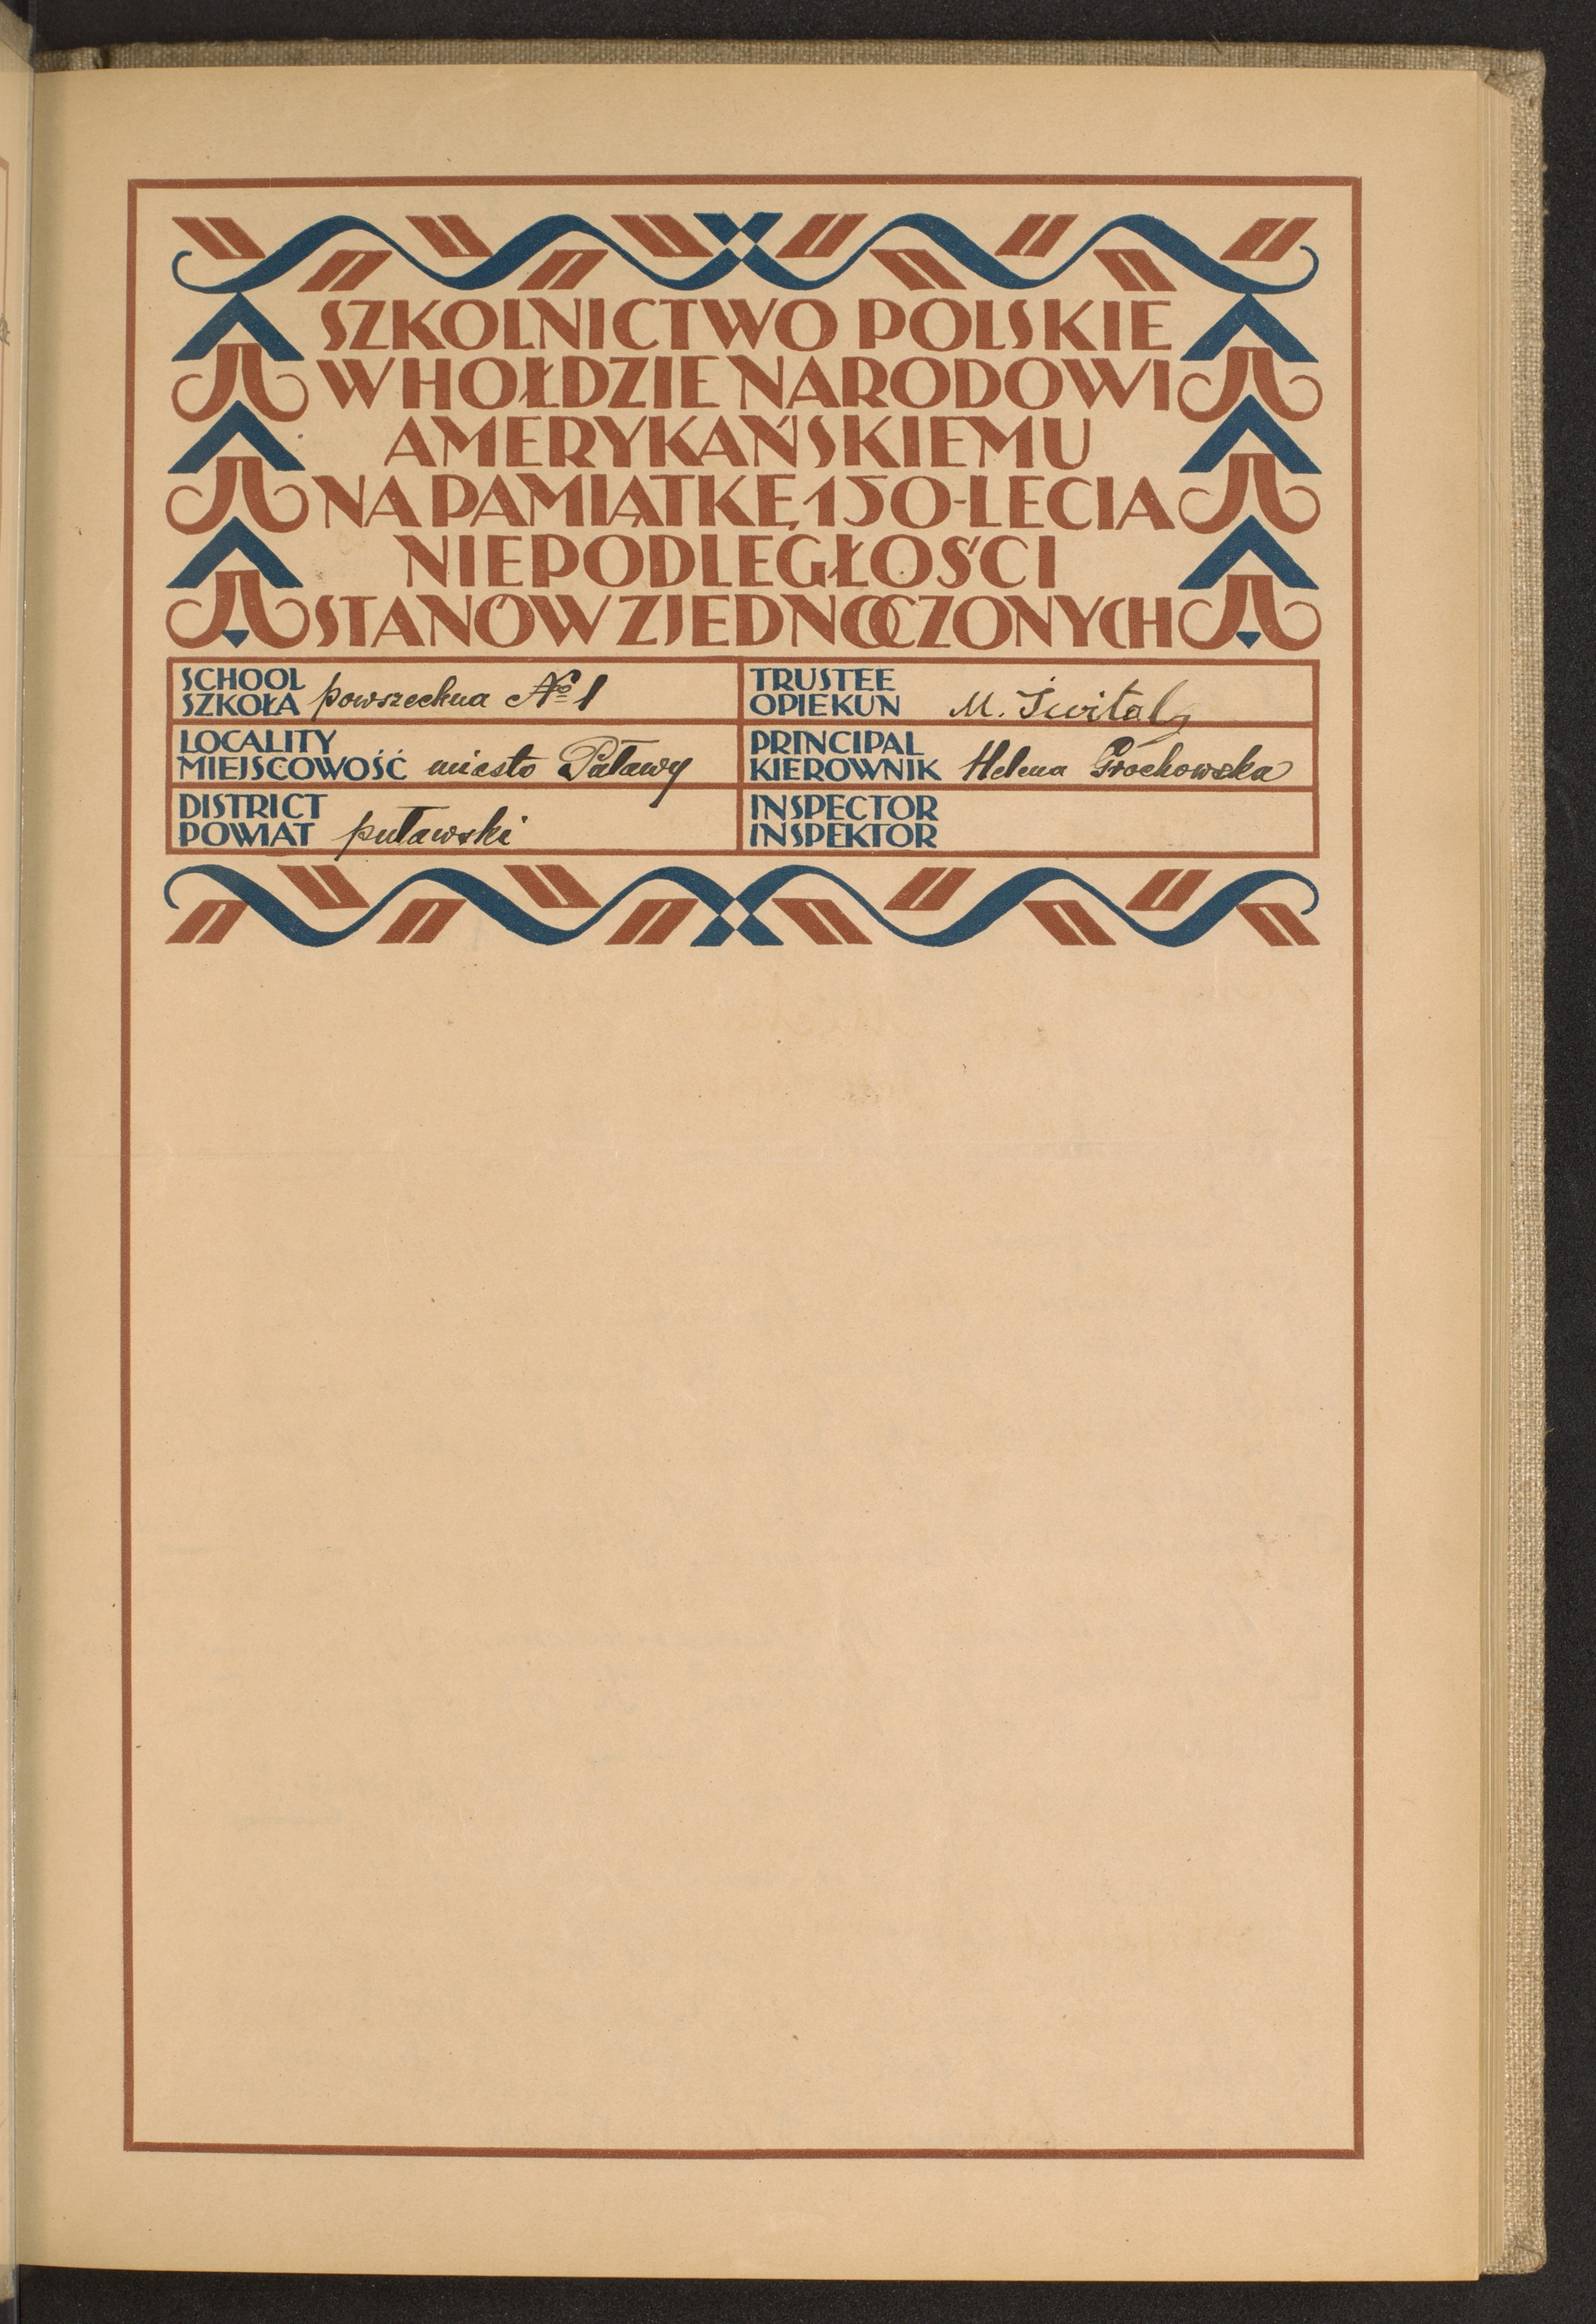 SZKOLNICTWO POLSKIE
W HOŁDZIE NARODOWI
AMERYKAŃSKIEMU
NA PAMIĄTKĘ 150-LECIA
NIEPODLEGŁOŚCI
STANÓW ZJEDNOCZONYCH
SCHOOL
SZKOŁA powszechna № 1
TRUSTEE
OPIEKUN M.
LOCALITY
MIEJSCOWOŚĆ miasto Puławy
PRINCIPAL
KIEROWNIK Helena Grochowska
DISTRICT
POWIAT puławski
INSPECTOR
INSPEKTOR